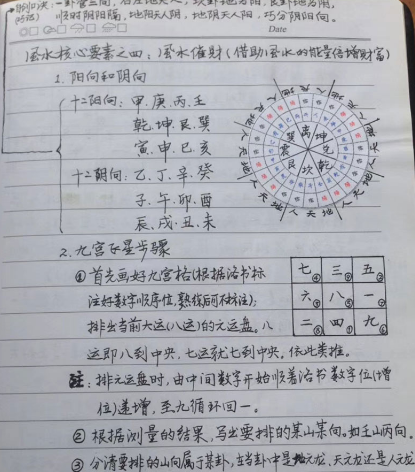 顺时阴阳隔，地阳天人阴，地阴天人阳，巧分阴阳向。
Date
风水核心要素之四：风水催财（借助风水的能量倍增财富）
1. 阳向和阴向
十二阳向：甲、庚、丙、壬
乾、坤、艮、巽
寅、申、巳、亥
十二阴向：乙、丁、辛、癸
子、午、卯、酉
辰、戌、丑、未
离 坤 兑 乾 坎 艮 震 巽
2. 九宫飞星步骤
① 首先画好九宫格（根据洛书标
注好数字顺序位，熟练后可不标注）；
排出当前大运（八运）的元运盘。八
运即八到中央，七运就七到中央。依此类推。
七④ 三⑨ 五②
六③ 八⑤ 一⑦
二⑧ 四① 九⑥
注：排元运盘时，由中间数字开始顺着洛书数字位（增
位）递增，至九循环回一。
② 根据测量的结果，写出要排的某山某向。如壬山丙向。
③ 分清要排的山向属于某卦，在当卦中是地元龙、天元龙还是人元龙